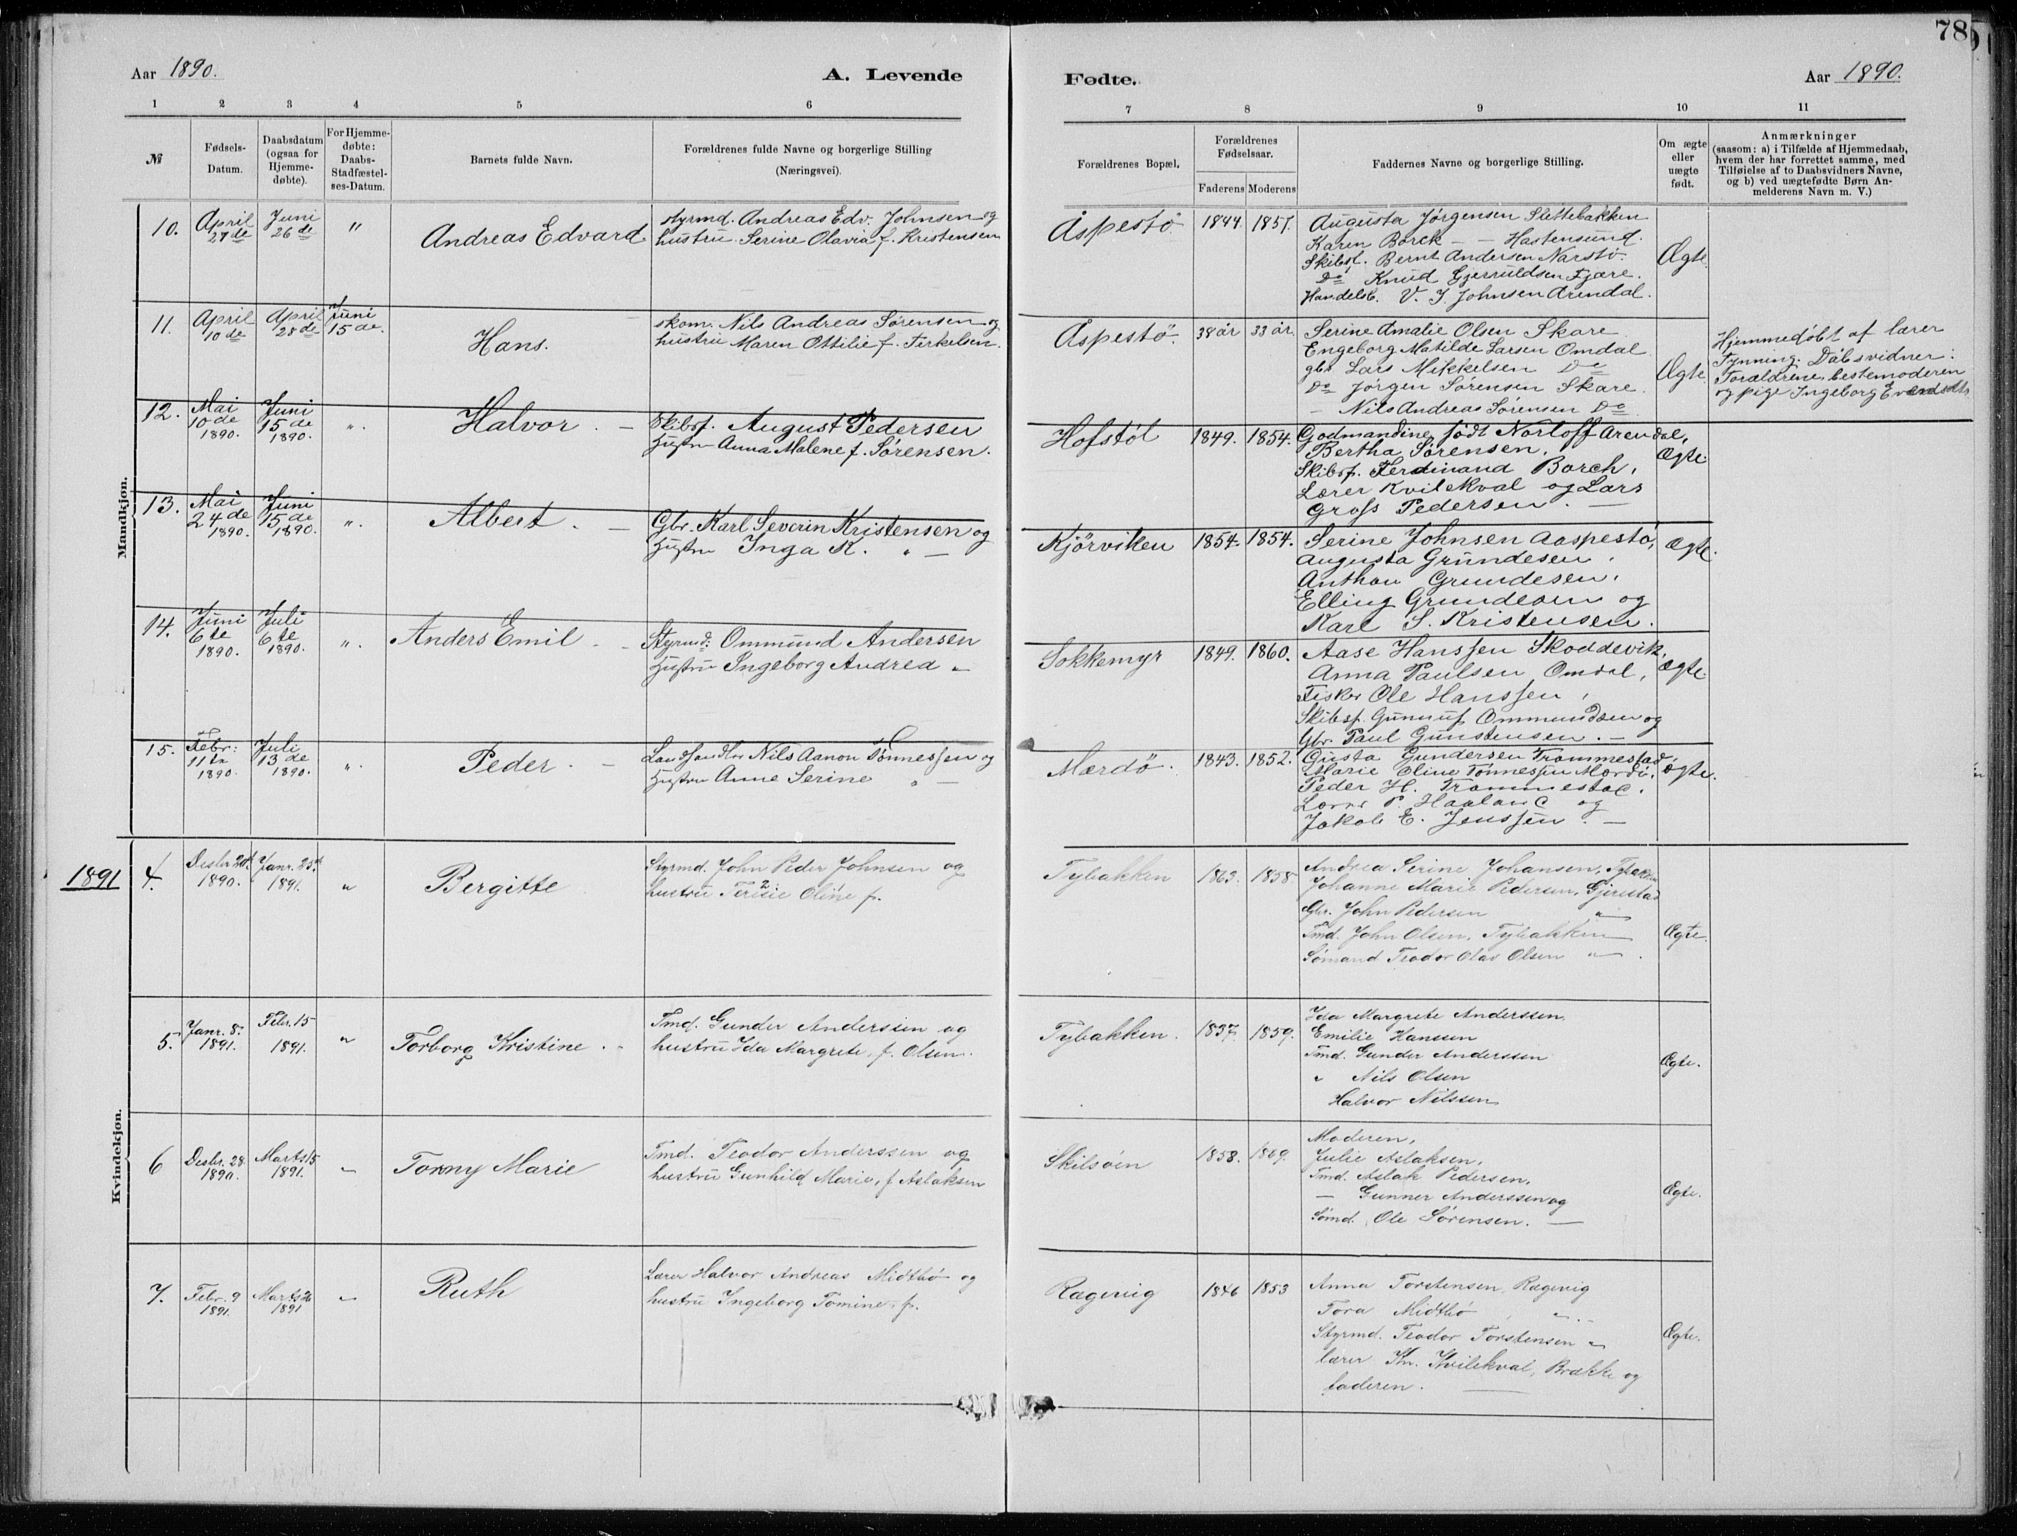 78
Aar 1890.
A. Levende
Fødte.
Aar 1890.
1 2 3 4 5 6 7 8 9 10 11
№
Fødsels-
Datum.
Daabsdatum
(ogsaa for
Hjemme-
døbte).
For Hjemme-
døbte:
Daabs-
Stadfæstel-
ses-Datum.
Barnets fulde Navn.
Forældrenes fulde Navne og borgerlige Stilling
(Næringsvei).
Forældrenes Bopæl.
Forældrenes
Fødselsaar.
Faderens Moderens
Faddernes Navne og borgerlige Stilling.
Om ægte
eller
uægte
født.
Anmærkninger
(saasom: a) i Tilfælde af Hjemmedaab,
hvem der har forrettet samme, med
Tilføielse af to Daabsvidners Navne,
og b) ved uægtefødte Børn An-
melderens Navn m. V.)
Mandkjøn.
10.
April
27de
Juni
26de
"
Andreas Edvard
styrmd. Andreas Edv. Johnsen og
hustru Serine Olavia f. Kristensen
Åspestø
1844 1857.
Augusta Jørgensen Slettebakken
Karen Borck — — Hastensund.
Skibsf. Bernt Andersen Narstø.
Do Knud Gjeruldsen Fjære.
Handelsb. V. J. Johnsen Arendal.
Ægte.
11.
April
10de
April
28de
Juni
15de.
Hans.
skom. Nils Andreas Sørensen og
hustru Maren Ottilie f. Terkelsen.
Åspestö.
38 år 33 år.
Serine Amalie Olsen Skare
Engeborg Matilde Larsen Omdal
gbr. Lars Mikkelsen Do
Do Jörgen Sörensen Skare.
— Nils Andreas Sörensen Do
Ægte.
Hjemmedøbt af lærer
Fynning. Dåbsvidner:
Forældrene, bestemoderen
og pige Ingeborg Evendsdt
12.
Mai
10de
1890.
Juni
15de
1890.
".
Halvor. —
Skibsf. August Pedersen
Hustru Anna Malene f. Sørensen.
Hofstöl
1849. 1854.
Godmandine født Norloff Arendal,
Bertha Sørensen,
Skibsf. Ferdinand Borch,
Lærer Kvilekval og Lars
Gross Pedersen. —
Ægte.
13.
Mai
24de
1890.
Juni
15de
1890.
".
Albert. —
Gbr. Karl Severin Kristensen og
Hustru Inga K. " —
Kjörviken
1854. 1854.
Serine Johnsen Aaspestö,
Augusta Grundesen,
Anthon Grundesen,
Elling Grundesen og
Karl S. Kristensen.
Ægte.
14.
Juni
6te
1890.
Juli
6te
1890.
".
Anders Emil — -
Styrmd: Ommund Andersen
Hustru Ingeborg Andrea "
Sokkemyr
1849. 1860.
Aase Hanssen Skoddevik,
Anna Paulsen Omdal,
Fisker Ole Hanssen,
Skibsf. Gunnuf Ommundsen og
Gbr. Paul Gunstensen. —
Ægte
15.
Febr:
11te
1890.
Juli
13de
1890.
".
Peder. —
Nils Aanon Tönnessen og
Hustru Anne Serine " —
Mærdö.
1843. 1852.
Gusta Gundersen Trommestad,
Marie Oline Tönnesen Mærdö,
Peder H. Trommestad,
Lærer P. Haaland og
Jakob E. Jenssen. —
Ægte.
Kvindekjøn.
1891
4.
Desbr. 20de
1890.
Janr. 25de
1891.
"
Bergitte
Styrmd. John Peder Johnsen og
hustru Terisie Oline f.
Tybakken
1863. 1858.
Andrea Serine Johansen, Tybakken
Johanne Marie Pedersen, Gjerestad
Gbr. John Pedersen "
Tmd. John Olsen, Tybakken
Sømand Teodor Olav Olsen " .
Ægte.
5.
Janr. 8.
1891.
Febr. 15
1891.
"
Torborg Kristine. "
Tmd. Gunder Anderssen og
hustru Ida Margrete, f. Olsen.
Tybakken.
1837. 1859.
Ida Margrete Anderssen,
Emilie Hanssen
Tmd. Gunder Anderssen
" Nils Olsen
Halvor Nilssen
Ægte.
6
Desbr. 28.
1890.
Marts 15
1891.
"
Torny Marie
Tmd. Teodor Anderssen og
hustru Gunhild Marie, f. Aslaksen
Skilsöen
1858. 1869.
Moderen,
Julie Aslaksen,
Tmd. Aslak Pedersen,
— Gunner Anderssen og
Sømd. Ole Sørensen. —
Ægte.
7.
Febr. 9
1891.
Marts 26
1891
"
Ruth
Lærer Halvor Andreas Midtbö og
hustru Ingeborg Tomine, f.
Rægevig
1846 1853
Anna Torstensen, Rægevig
Tora Midtbö "
Styrmd. Teodor Torstensen "
lærer Kn. Kvilekval, Brække og
faderen. —
Ægte.